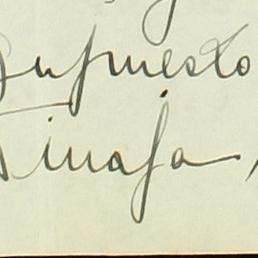 Supuesto
Tinaja,